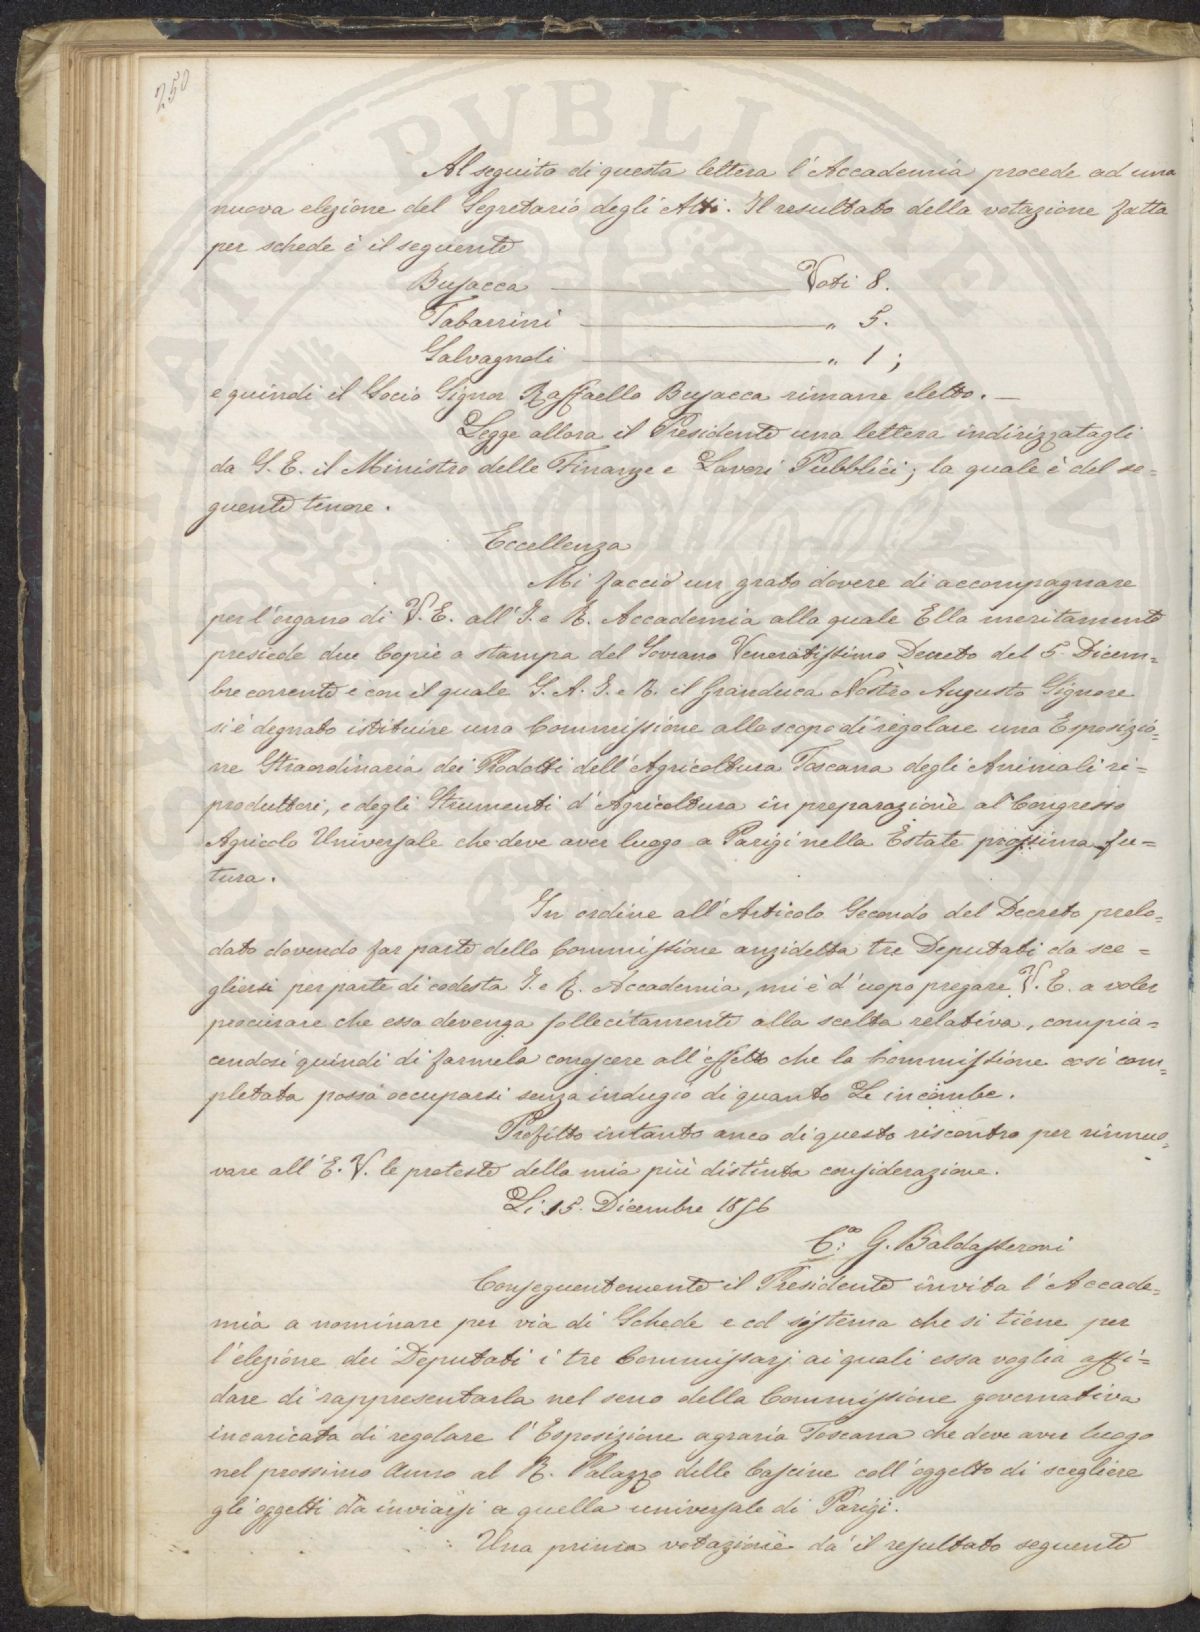 250
Al seguito di questa lettera l'Accademia procede ad una
nuova elezione del Segretario degli Atti. Il resultato della votazione fatta
per schede è il seguente
Busacca ———— Voti 8.
Tabarrini ———— " 5.
Salvagnoli ———— " 1;
e quindi il Socio Signor Raffaello Busacca rimane eletto. —
Legge allora il Presidente una lettera indirizzatagli
da S. E. il Ministro delle Finanze e Lavori Pubblici; la quale è del se=
guente tenore.
Eccellenza
Mi faccio un grato dovere di accompagnare
per l'organo di V. E. all'I. e R. Accademia alla quale Ella meritamente
presiede due Copie a stampa del Sovrano Veneratissimo Decreto del 5. Dicem=
bre corrente e con il quale S. A. I. e R. il Granduca Nostro Augusto Signore
si è degnato istituire una Commissione allo scopo di regolare una Esposizio=
ne Straordinaria dei Prodotti dell'Agricoltura Toscana degli Animali ri=
produttori, e degli Strumenti d'Agricoltura in preparazione al Congresso
Agricolo Universale che deve aver luogo a Parigi nella Estate prossima fu=
tura.
In ordine all'Articolo Secondo del Decreto prelo=
dato dovendo far parte della Commissione anzidetta tre Deputati da sce=
gliersi per parte di codesta I. e R. Accademia, mi è d'uopo pregare V. E. a voler
procurare che essa devenga sollecitamente alla scelta relativa, compia=
cendosi quindi di farmela conoscere all'effetto che la Commissione così com=
pletata possa occuparsi senza indugio di quanto Le incombe.
Profitto intanto anco di questo riscontro per rinnuo=
vare all'E. V. le proteste della mia più distinta considerazione.
Li 15. Dicembre 1856
G. Baldasseroni
Conseguentemente il Presidente invita l'Accade=
mia a nominare per via di Schede e col sistema che si tiene per
l'elezione dei Deputati i tre Commissarj ai quali essa voglia affi=
dare di rappresentarla nel seno della Commissione governativa
incaricata di regolare l'Esposizione agraria Toscana che deve aver luogo
nel prossimo Anno al R. Palazzo delle Cascine coll'oggetto di scegliere
gli oggetti da inviarsi a quella universale di Parigi.
Una prima votazione dà il resultato seguente